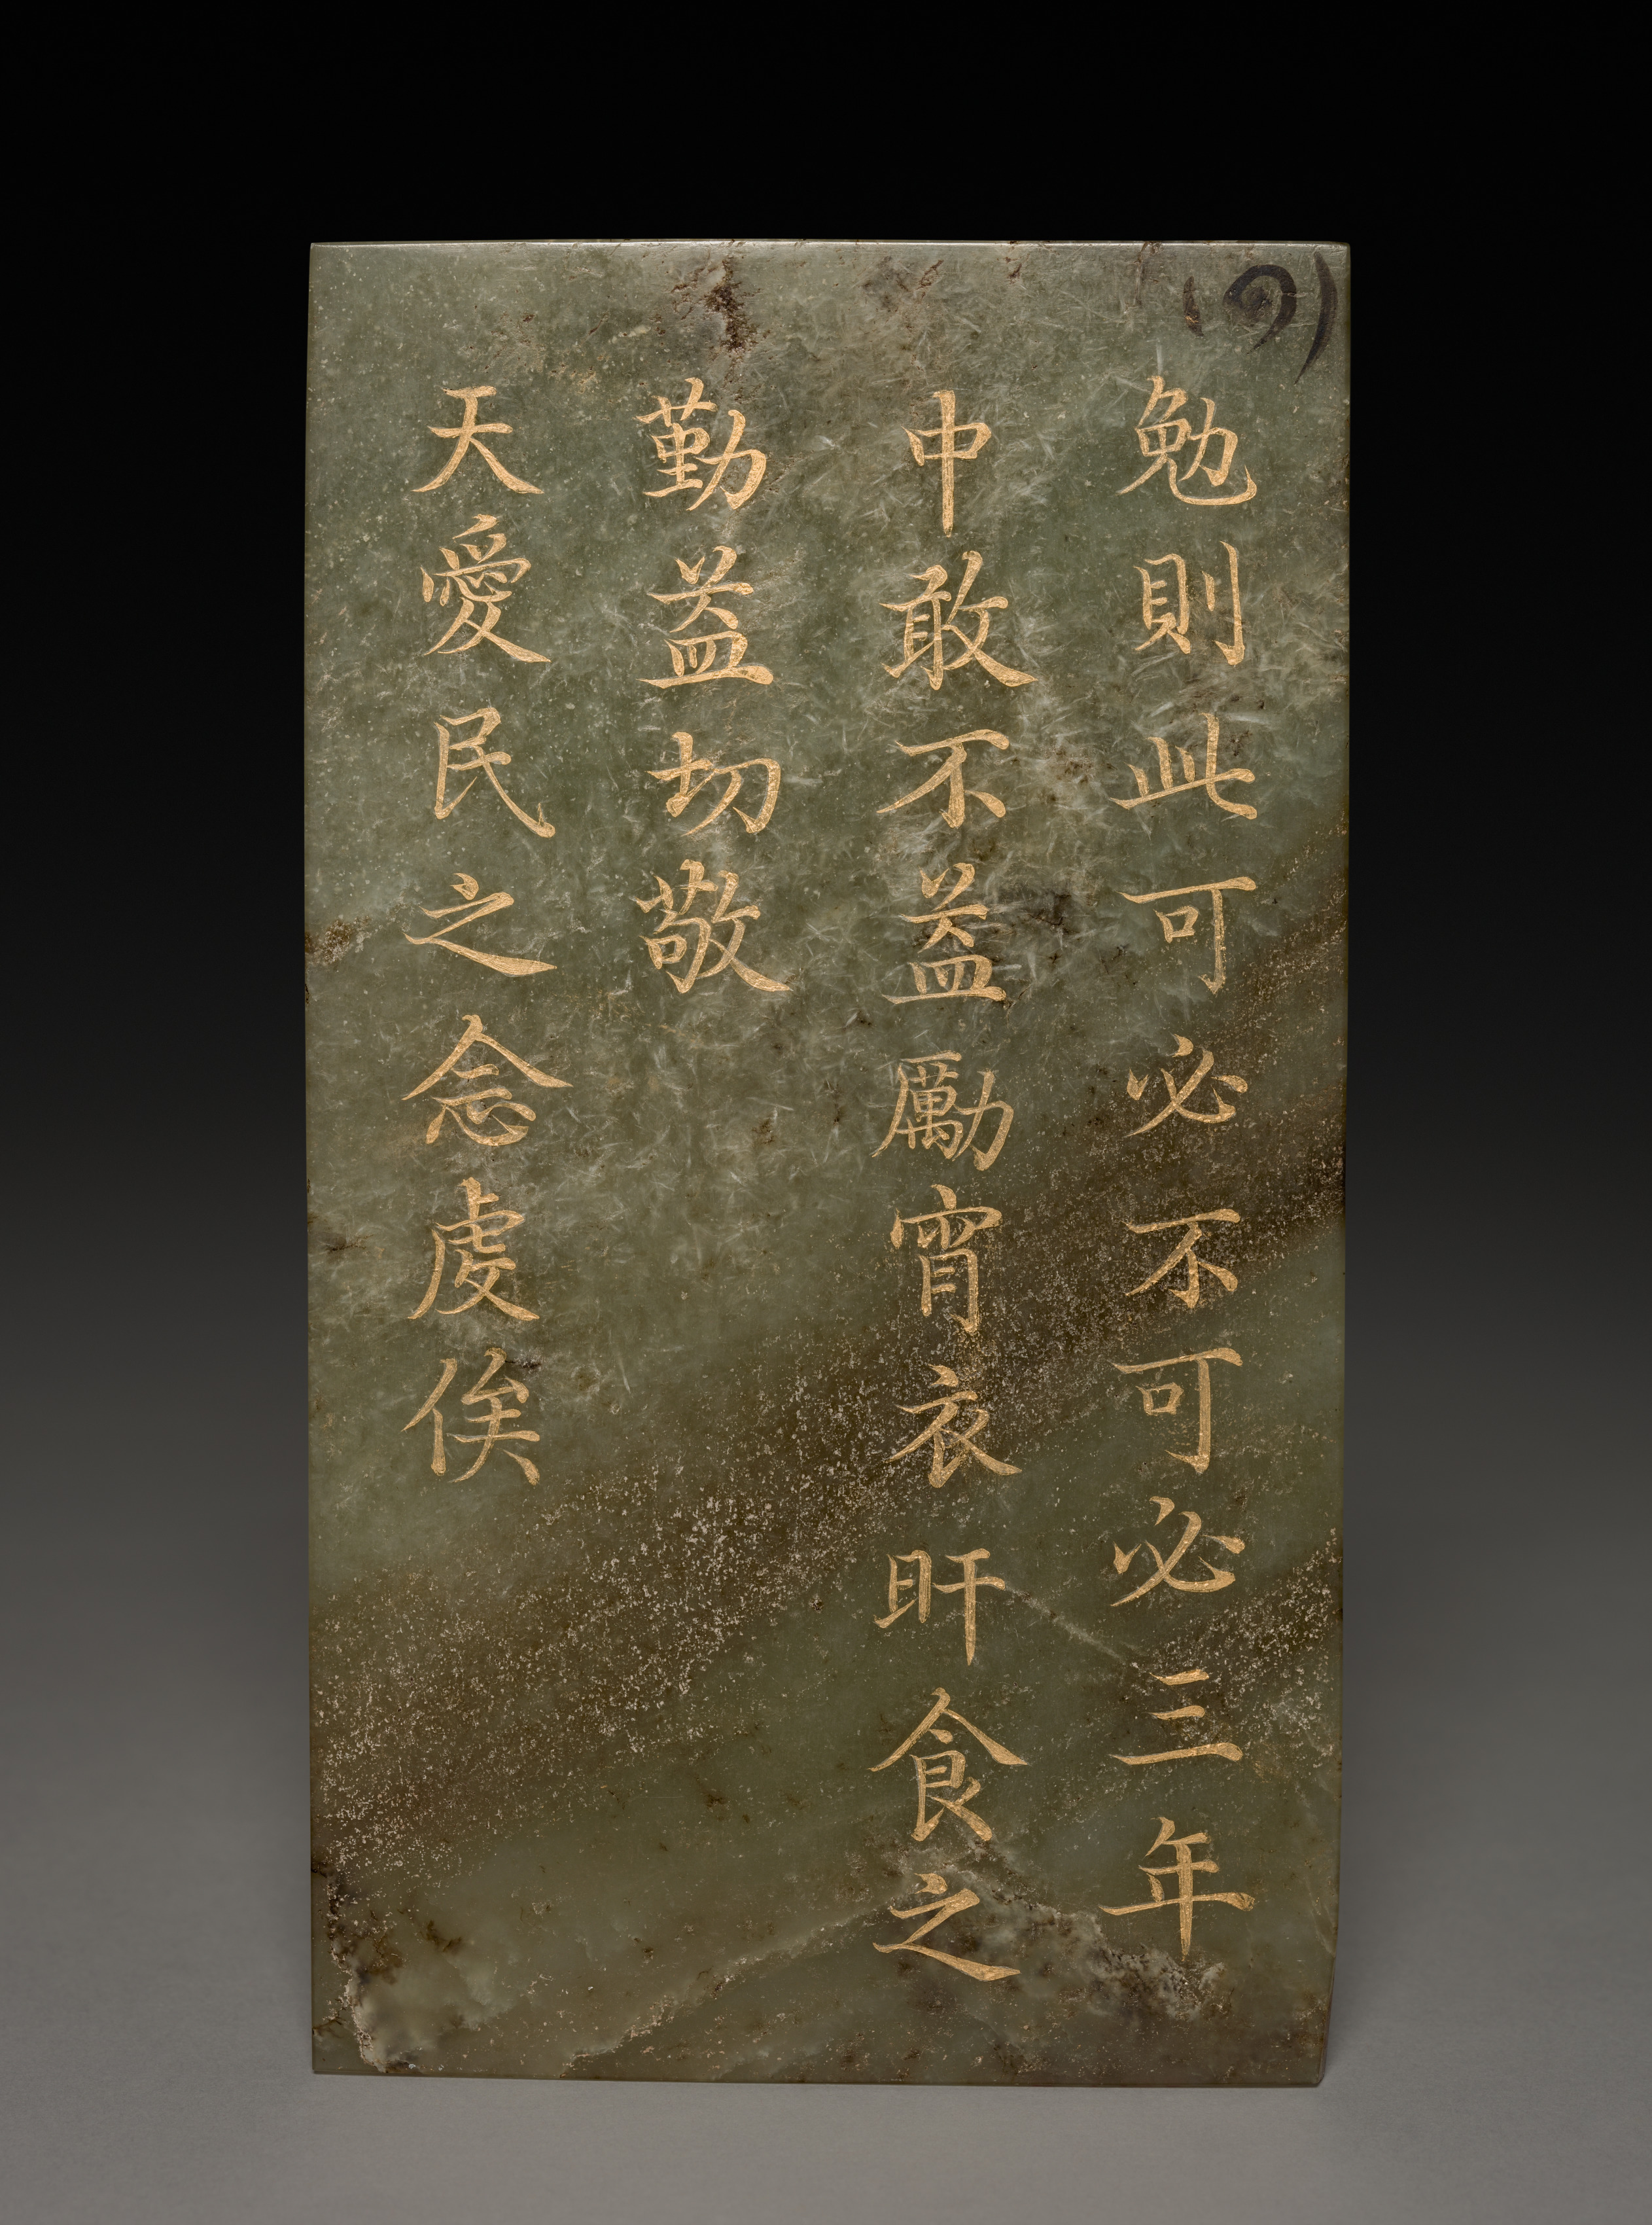 勉則此可必不可必三年
中敢不益勵宵衣旰食之
勤益切敬
天愛民之念虔俟